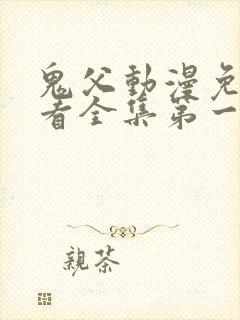 鬼父動漫免
看全集第一
親茶